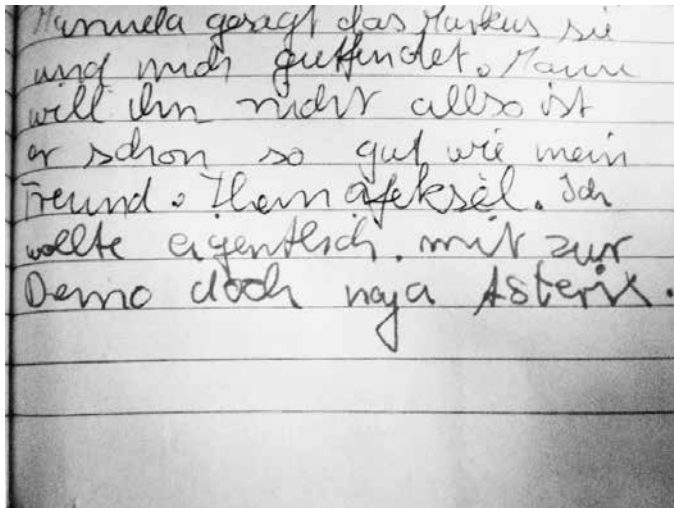 Manuela gesagt das Markus sie
und mich guttfindet. Manu
will ihn nicht allso ist
er schon so gut wie mein
Freund. Ich
wollte eigentlich mit zur
Demo doch naja Asterix.